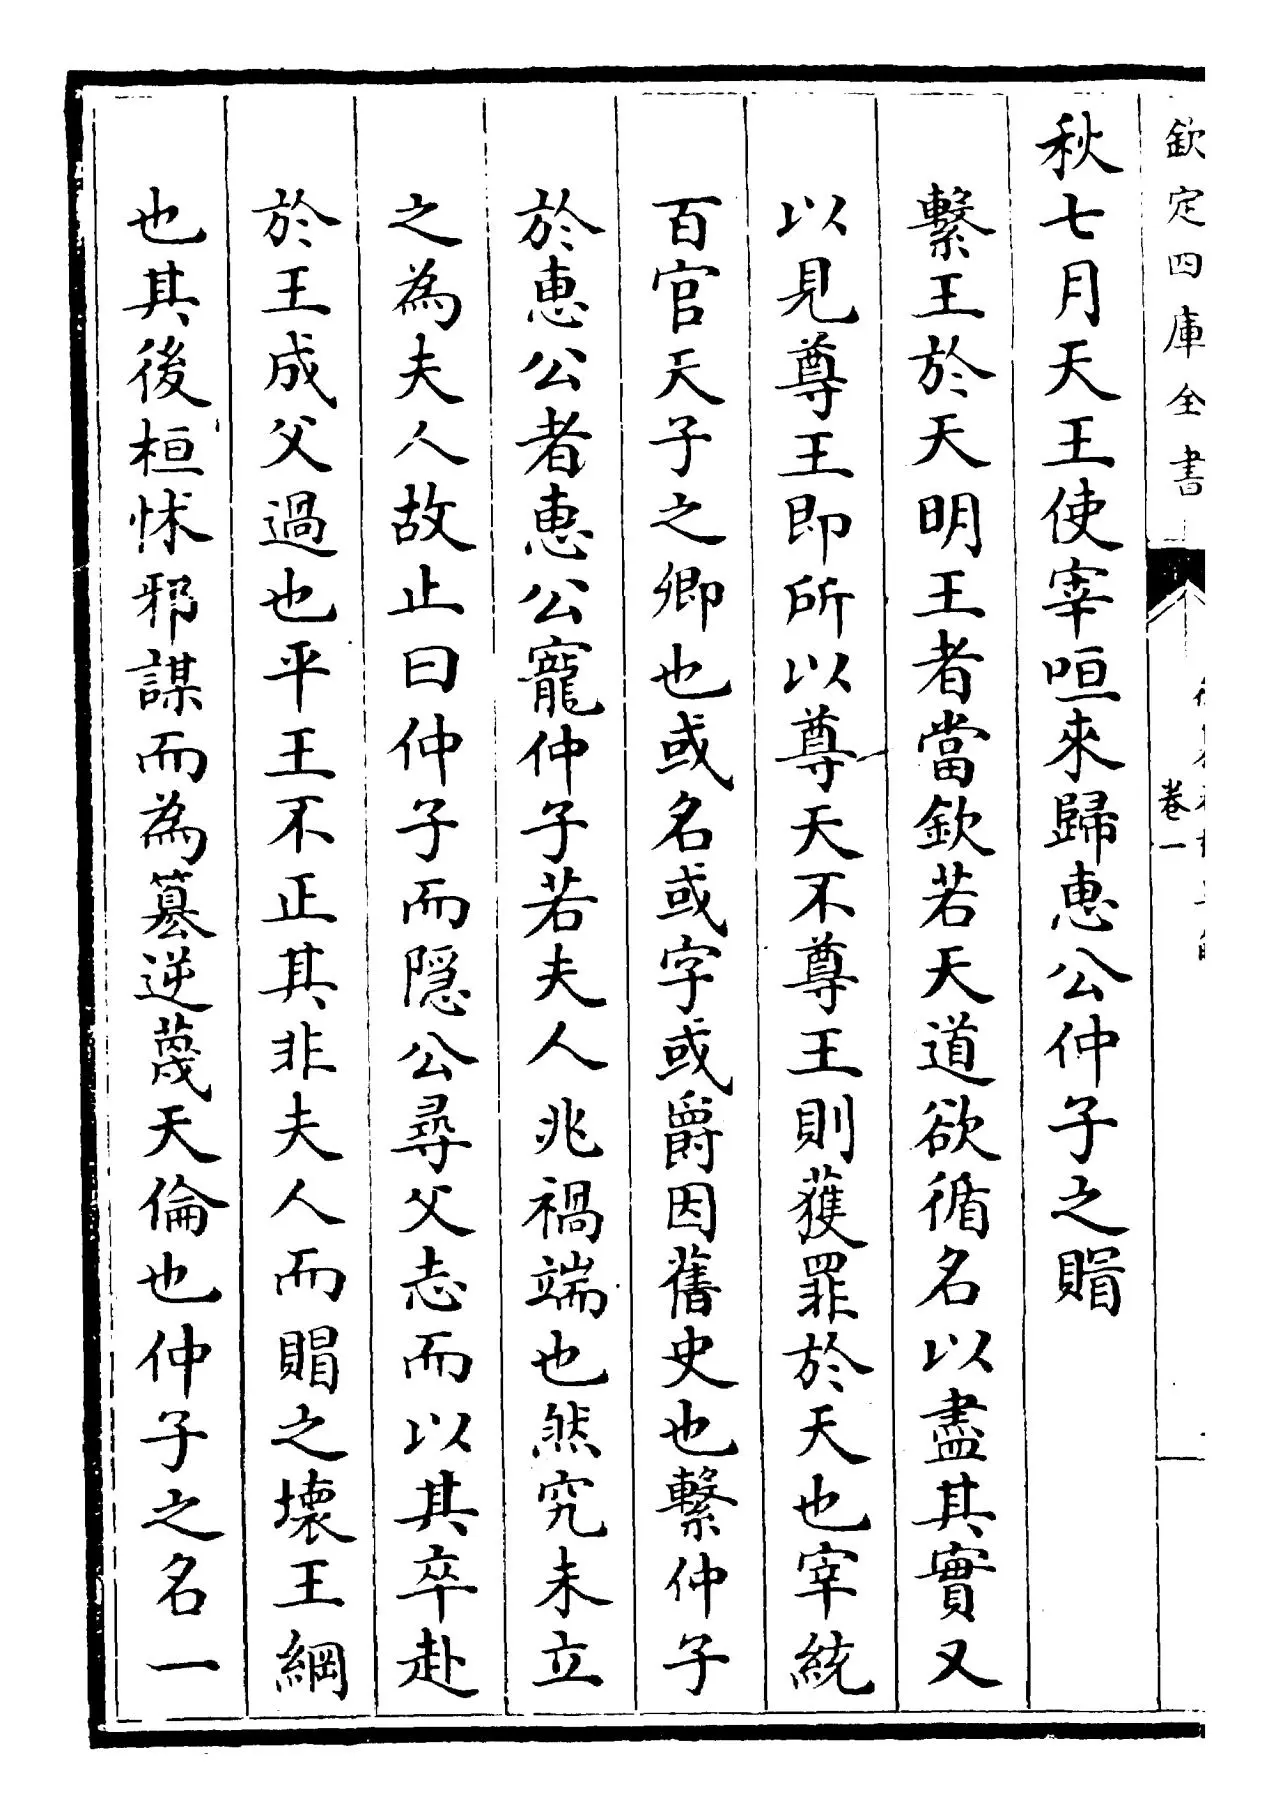 欽定四庫全書
卷一
秋七月天王使宰咺來歸惠公仲子之賵
繫王於天明王者當欽若天道欲循名以盡其實又
以見尊王即所以尊天不尊王則獲罪於天也宰統
百官天子之卿也或名或字或爵因舊史也繫仲子
於惠公者惠公寵仲子若夫人兆禍端也然究未立
之為夫人故止曰仲子而隱公尋父志而以其卒赴
於王成父過也平王不正其非夫人而賵之壞王綱
也其後桓怵邪謀而為簒逆蔑天倫也仲子之名一